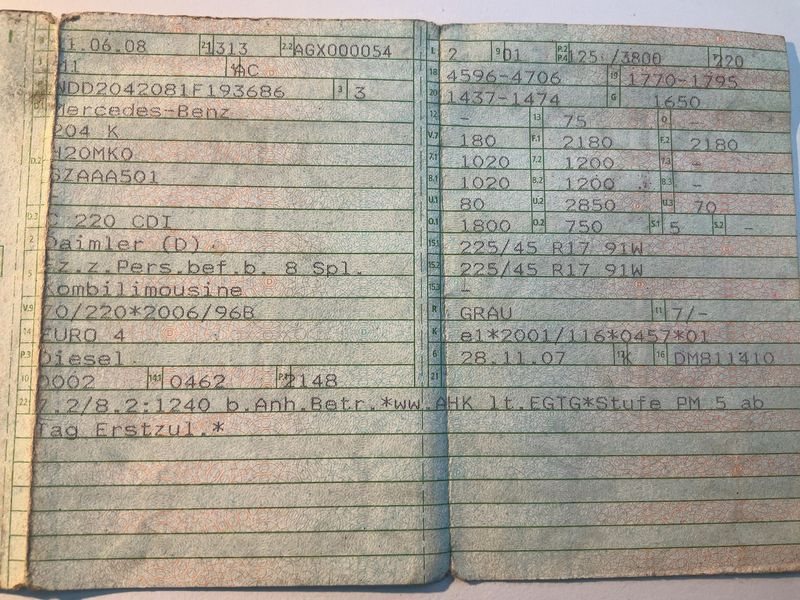 .06.08 2.1 1313 2.2 AGX000054
J 11 4 AC
E WDD2042081F193686 3 3
D.1 Mercedes-Benz
204 K
D.2 H20MK0
SZAAA501
-
D.3 C 220 CDI
2 Daimler (D)
5 Fz.z.Pers.bef.b. 8 Spl.
Kombilimousine
V.9 70/220*2006/96B
14 EURO 4
P.3 Diesel
10 0002 14.1 0462 P.1 2148
L 2 9 01 P.2 P.4 125 /3800 220
18 4596-4706 19 1770-1795
20 1437-1474 G 1650
12 - 13 75 Q -
V.7 180 F.1 2180 F.2 2180
7.1 1020 7.2 1200 7.3 -
8.1 1020 8.2 1200 8.3 -
U.1 80 U.2 2850 U.3 70
O.1 1800 O.2 750 S.1 5 S.2 -
15.1 225/45 R17 91W
15.2 225/45 R17 91W
15.3 -
R GRAU 11 7/-
K e1*2001/116*0457*01
6 28.11.07 17 K 16 DM811410
21
22 7.2/8.2:1240 b.Anh.Betr.*ww.AHK lt.EGTG*Stufe PM 5 ab
Tag Erstzul.*